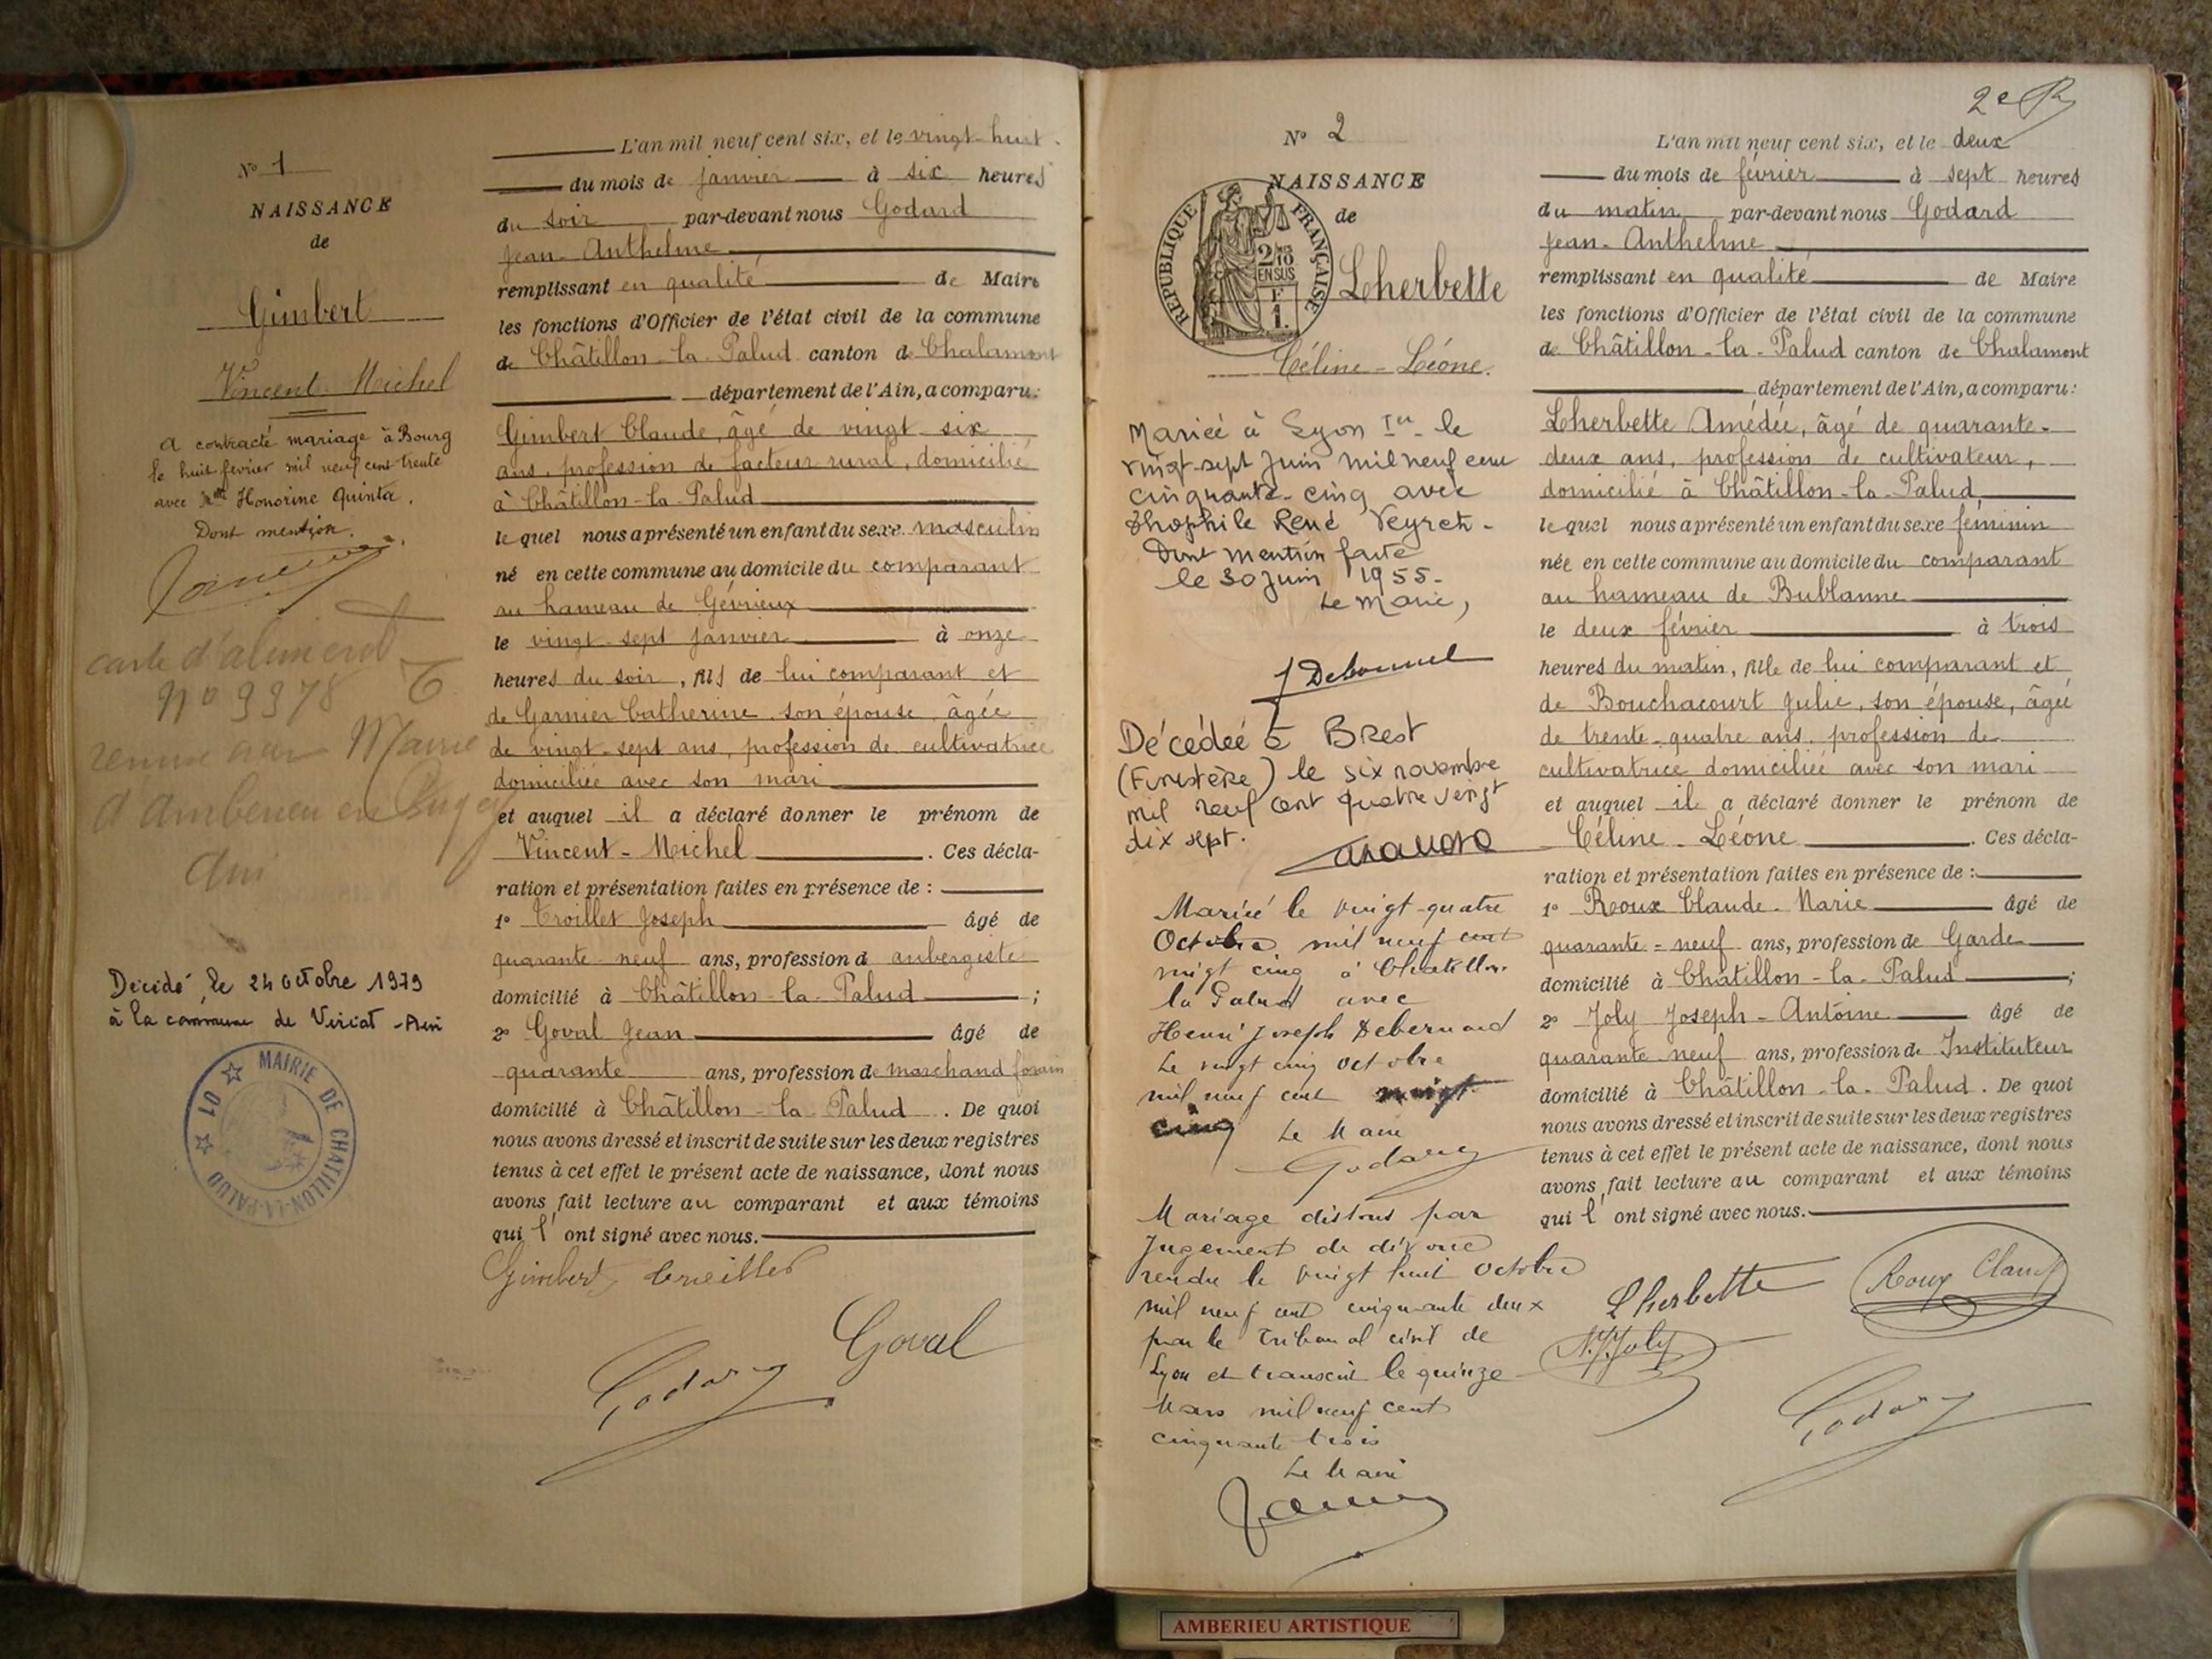 N° 1
NAISSANCE
de
Gimbert
Vincent-Michel
a contracté mariage à Bourg
le huit février mil neuf cent trente
avec Mlle Honorine Quinta.
Dont mention.
carte d'aliment
n° 9378
Mairie
d'Amberieu en Bugey
Ain
Décédé le 24 octobre 1979
à la commune de Viriat - Ain
MAIRIE DE CHATILLON-LA-PALUD 01
L'an mil neuf cent six, et le vingt-huit
du mois de janvier à six heures
du soir par-devant nous Godard
Jean-Anthelme
remplissant en qualité de Maire
les fonctions d'Officier de l'état civil de la commune
de Châtillon-la-Palud canton de Chalamont
département de l'Ain, a comparu:
Gimbert Claude, âgé de vingt-six
ans, profession de facteur rural, domicilié
à Châtillon-la-Palud
lequel nous a présenté un enfant du sexe masculin
né en cette commune au domicile du comparant
au hameau de Gévrieux
le vingt-sept janvier à onze
heures du soir, fils de lui comparant et
de Garnier Catherine, son épouse, âgée
de vingt-sept ans, profession de cultivatrice
domiciliée avec son mari
et auquel il a déclaré donner le prénom de
Vincent-Michel. Ces décla-
ration et présentation faites en présence de :
1° Troillet Joseph âgé de
quarante-neuf ans, profession d aubergiste
domicilié à Châtillon-la-Palud ;
2° Goval Jean âgé de
quarante ans, profession de marchand forain
domicilié à Châtillon-la-Palud. De quoi
nous avons dressé et inscrit de suite sur les deux registres
tenus à cet effet le présent acte de naissance, dont nous
avons fait lecture au comparant et aux témoins
qui l'ont signé avec nous.
Gimbert
Goval
Godard
N° 2
NAISSANCE
de
RÉPUBLIQUE FRANÇAISE
2/10
EN SUS
F
1.
Lherbette
Céline-Léone.
Mariée à Lyon Ier le
vingt-sept Juin mil neuf cent
cinquante-cinq avec
René Veyret-
Dont mention faite
le 30 Juin 1955-
Le Maire,
Décédée à Brest
(Finistère) le six novembre
mil neuf cent quatre vingt
dix sept.
Mariée le vingt-quatre
Octobre mil neuf cent
vingt cinq à Châtillon
la Palud avec
Henri Joseph Debernard
Le vingt cinq octobre
mil neuf cent vingt
cinq Le Maire
Godard
Mariage dissous par
Jugement de divorce
rendu le vingt huit Octobre
mil neuf cent cinquante deux
par le Tribunal civil de
Lyon et transcrit le quinze
Mars mil neuf cent
cinquante trois
Le Maire
2e
L'an mil neuf cent six, et le deux
du mois de février à sept heures
du matin par-devant nous Godard
Jean-Anthelme
remplissant en qualité de Maire
les fonctions d'Officier de l'état civil de la commune
de Châtillon-la-Palud canton de Chalamont
département de l'Ain, a comparu:
Lherbette Amédée, âgé de quarante-
deux ans, profession de cultivateur,
domicilié à Châtillon-la-Palud,
lequel nous a présenté un enfant du sexe féminin
née en cette commune au domicile du comparant
au hameau de Bublanne
le deux février à trois
heures du matin, fille de lui comparant et
de Bouchacourt Julie, son épouse, âgée
de trente-quatre ans, profession de
cultivatrice domiciliée avec son mari
et auquel il a déclaré donner le prénom de
Céline-Léone. Ces décla-
ration et présentation faites en présence de :
1° Roux Claude-Marie âgé de
quarante-neuf ans, profession de Garde
domicilié à Châtillon-la-Palud ;
2° Joly Joseph-Antoine âgé de
quarante-neuf ans, profession de Instituteur
domicilié à Châtillon-la-Palud. De quoi
nous avons dressé et inscrit de suite sur les deux registres
tenus à cet effet le présent acte de naissance, dont nous
avons fait lecture au comparant et aux témoins
qui l'ont signé avec nous.
Lherbette
Roux Claude
Joly
Godard
AMBERIEU ARTISTIQUE